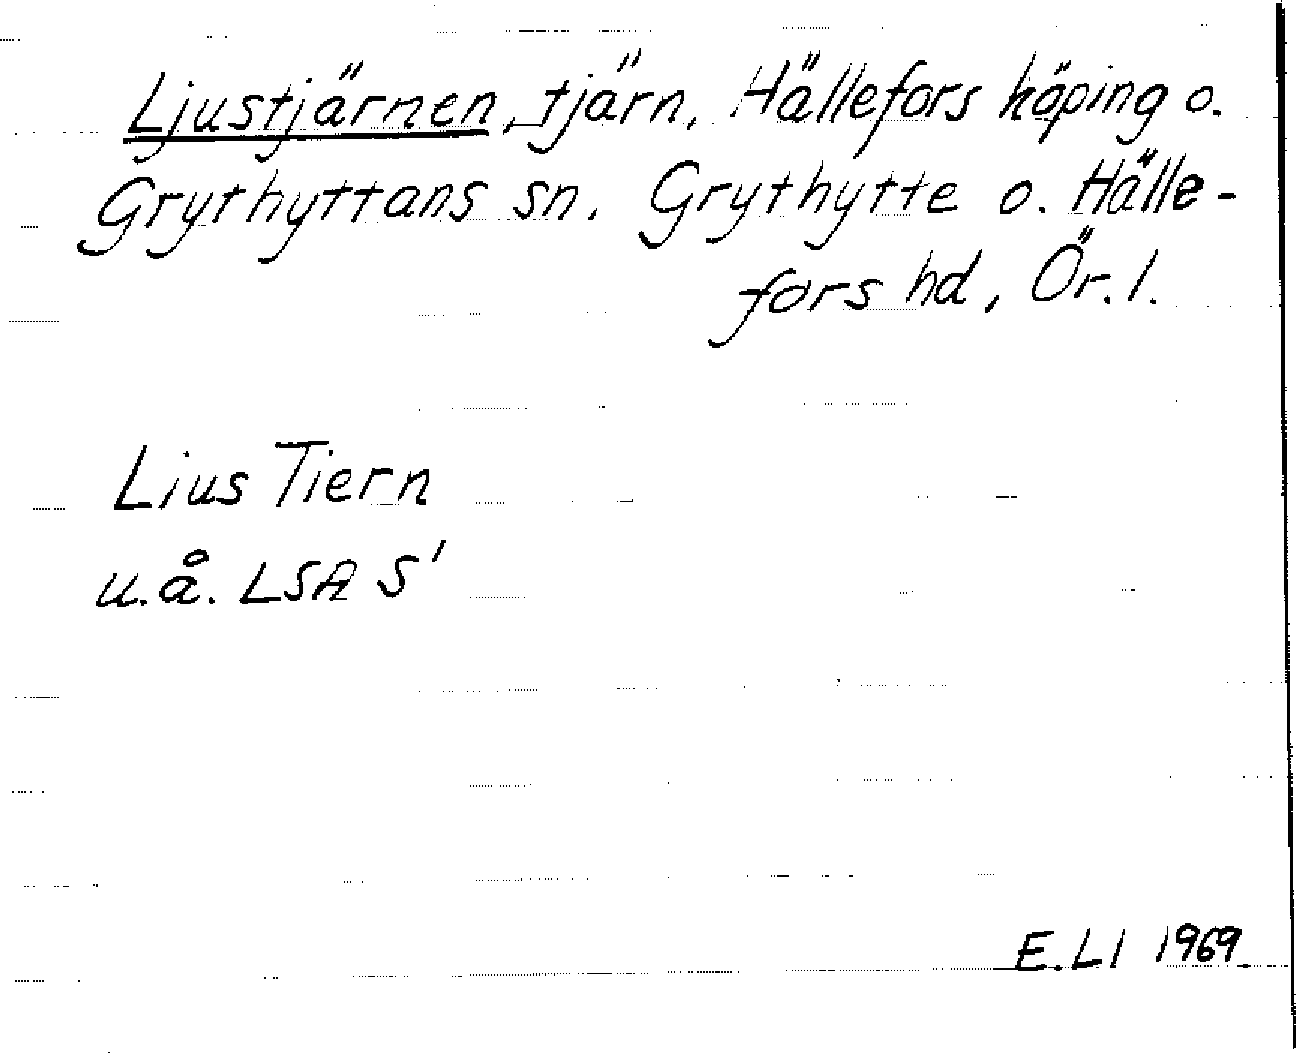 Ljustjärnen, tjärn, Hällefors köping o.
Grythyttans sn. Grythytte o. Hälle-
fors hd, Ör. l.
Lius Tiern
u.å. LSA S1
E.LI 1969